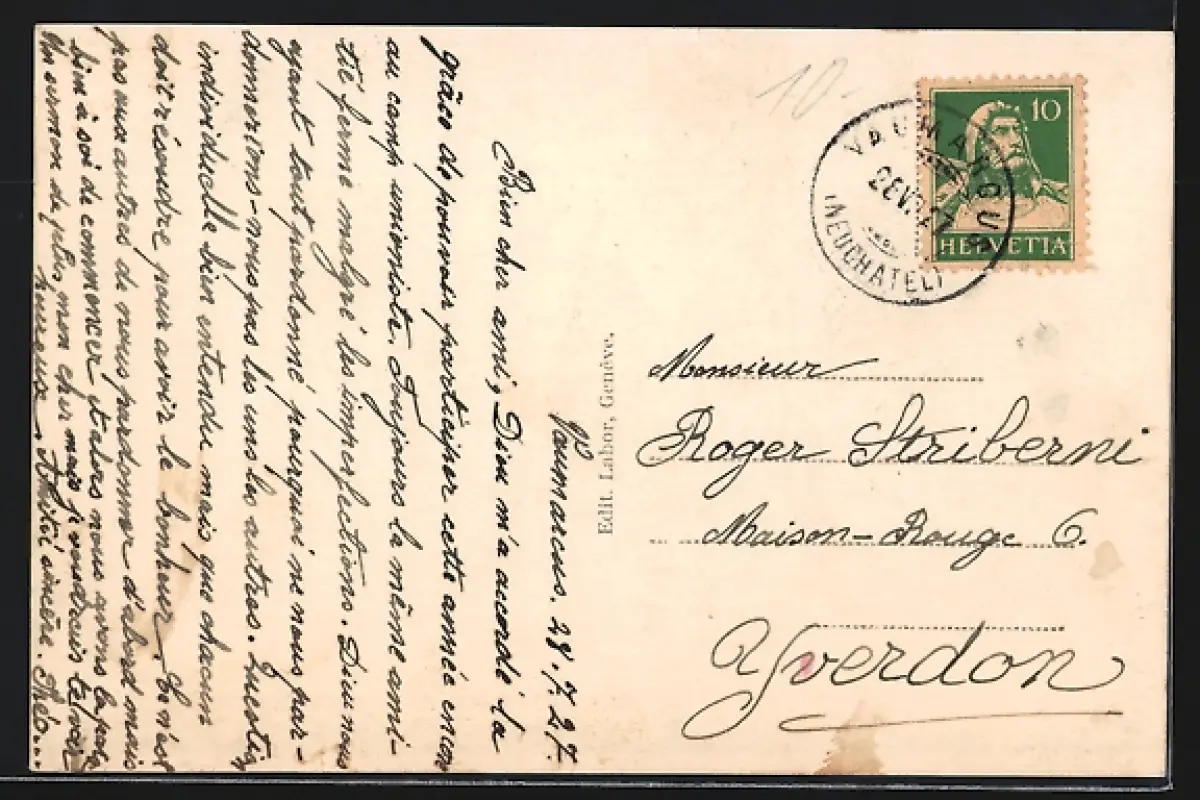 10.-
VAUMARCUS
28 VII 27
(NEUCHATEL)
10
HELVETIA
Vaumarcus. 28. 7. 27.
Bien cher ami, Dieu m'a accordé la
grâce de pouvoir participer cette année encore
au camp unioniste. Toujours la même ami-
tié ferme malgré les imperfections. Dieu nous
ayant tout pardonné pourquoi ne nous par-
donnerions-nous pas les uns les autres. Question
individuelle bien entendu mais que chacun
doit résoudre pour avoir le bonheur. Ce n'est
pas aux autres de nous pardonner d'abord mais
bien à soi de commencer et alors nous avons la paix
Un sermon de plus mon cher mais je voudrais te voir
heureux. Amitié sincère. Théo...
Edit. Labor, Genève.
Monsieur
Roger Striberni
Maison-Rouge 6.
Yverdon